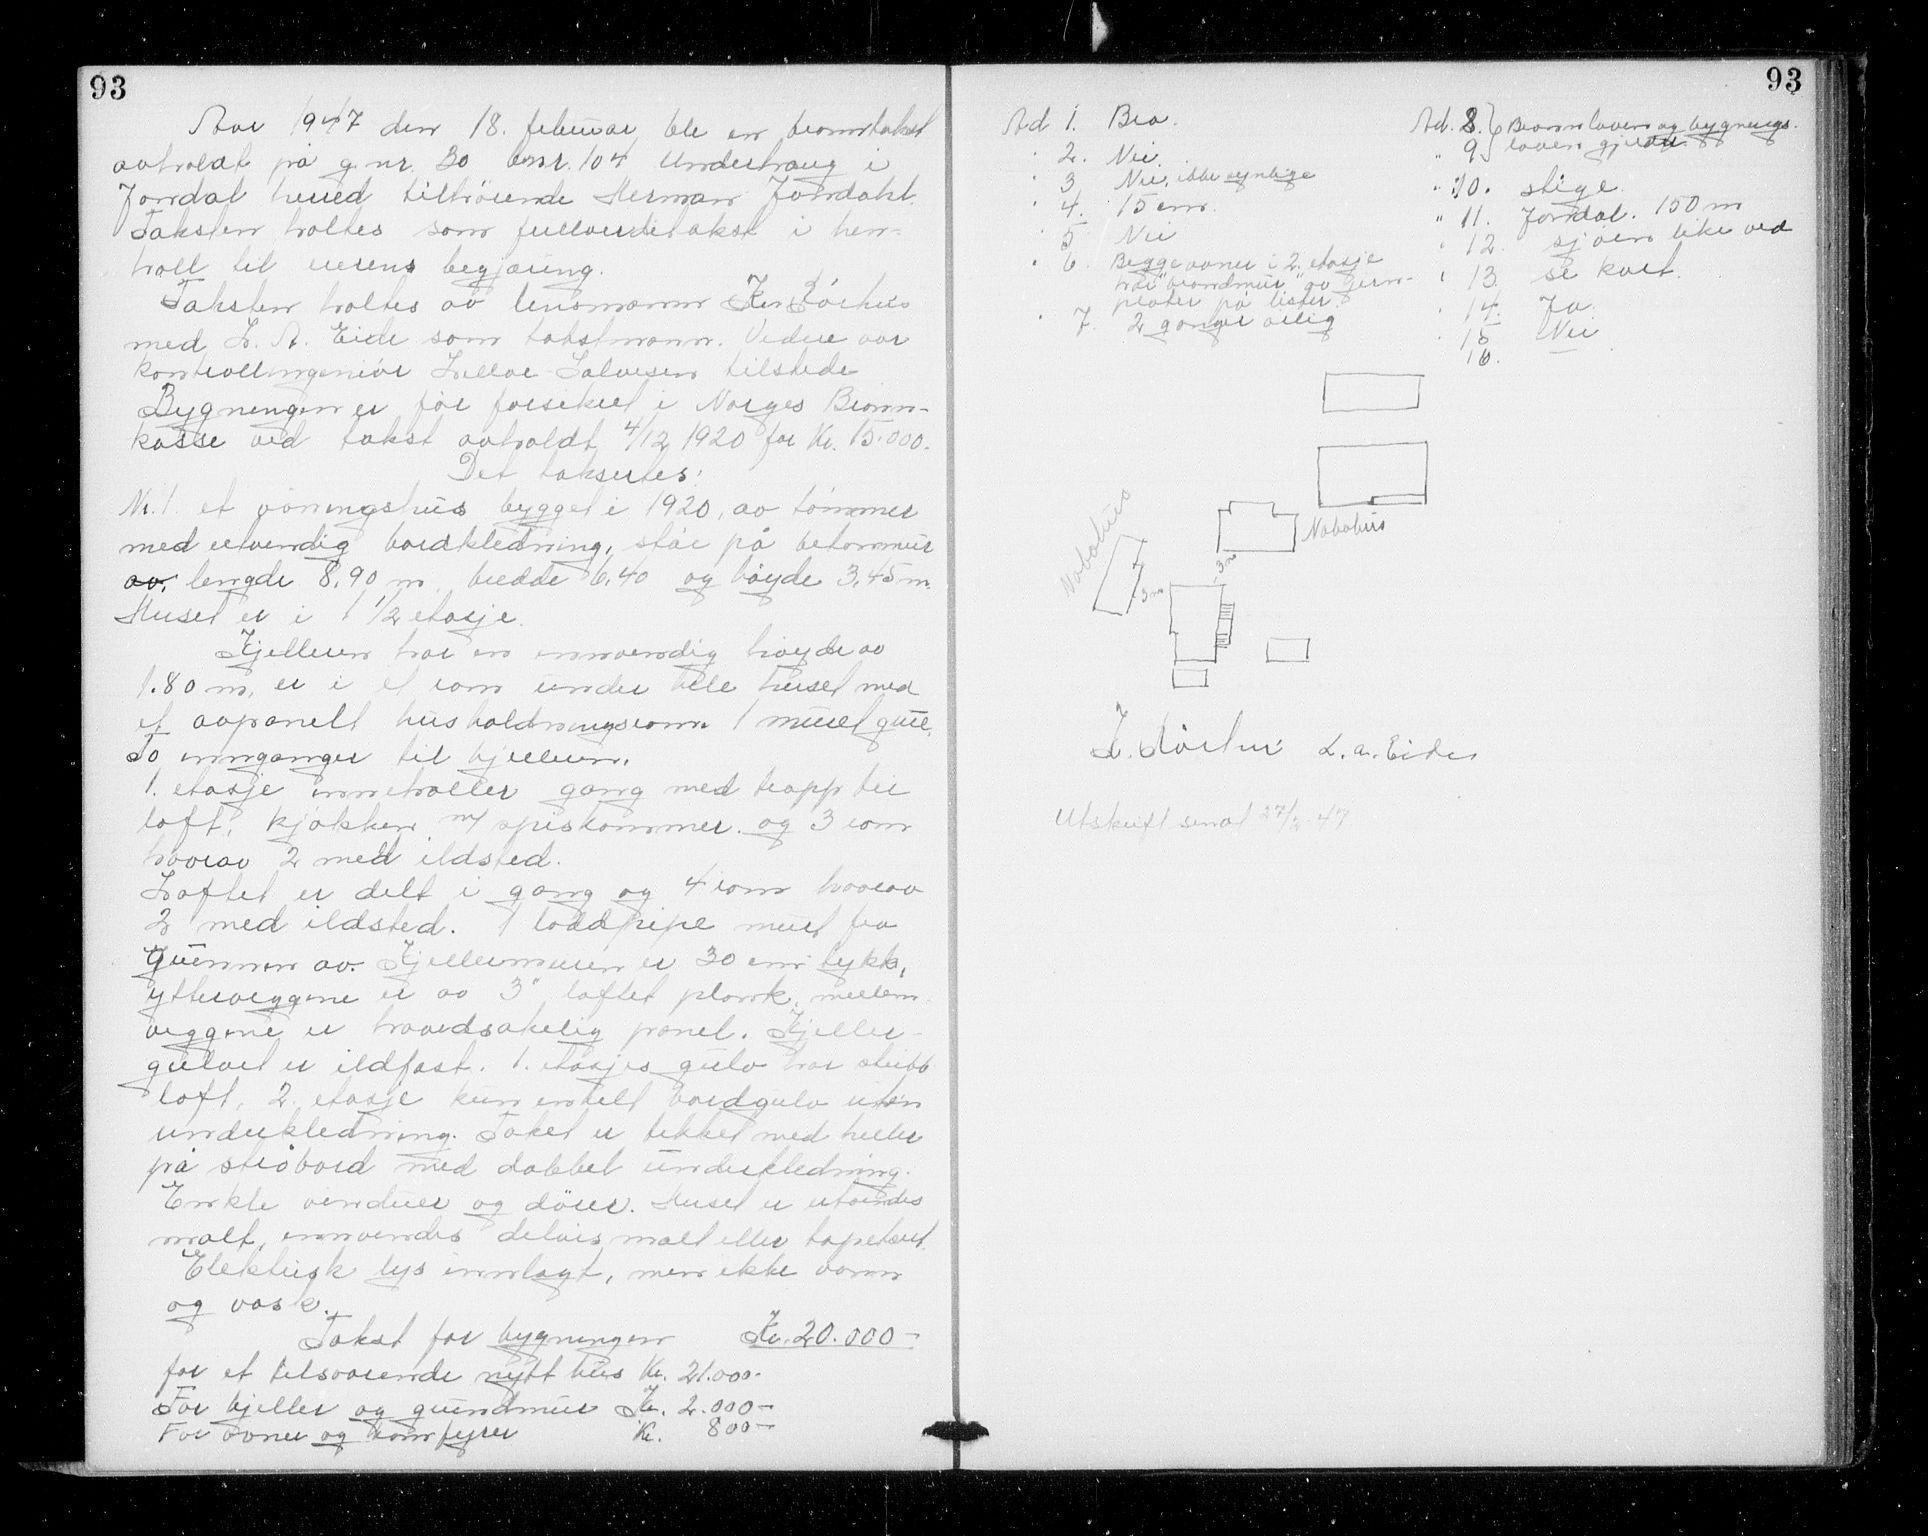 93
Aar 1947 den 18. februar ble en branntakst
avholdt på g.nr. 30 bnr. 104 Underhaug i
Jondal herred tilhörende Herman Jondahl.
Taksten holtes som fullverditakst i hen-
hold til eierens begjæring.
Taksten holtes av lensmann
med L. A. Eide som takstmann. Videre var
kontrollingeniör Salvesen tilstede
Bygningen er för forsikret i Norges Brann-
kasse ved takst avholdt 4/12 1920 for Kr. 15.000.
Det taksertes:
Nr. 1. et våningshus bygget i 1920, av tömmer
med utvendig bordkledning, står på betonmur
av, lengde 8,90 m bredde 6,40 og höyde 3,45 m.
Huset er i 1 1/2 etasje.
Kjelleren har en innvendig höyde av
1.80 m, er i et rom under hele huset med
et avpanelt husholdningsrom 1 muret grue.
To innganger til kjelleren.
1. etasje inneholder gang med trapp til
loft, kjökken m/ spiskammer og 3 rom
hvorav 2 med ildsted.
Loftet er delt i gang og 4 rom hvorav
2 med ildsted. 1 loddpipe murt fra
grunnen av. Kjellermuren er 30 cm tykk,
ytterveggene er av 3" laftet plank, mellem-
veggene er hovedsakelig panel. Kjeller-
gulvet er ildfast. 1. etasjes gulv har stubb
loft, 2. etasje kun enkelt bordgulv uten
underkledning. Taket er tekket med heller
på sröbord med dobbel underkledning.
Enkle vinduer og dörer. Huset er utvendes
malt, innvendes delvis malt eller tapetsert.
Elektrisk lys innlagt, men ikke vann
og vask.
Takst for bygningen Kr. 20.000-
for et tilsvarende nytt hus Kr. 21.000-
For kjeller og grundmur Kr. 2.000-
For ovner og komfyrer Kr. 800-
93
Ad 1. Bra.
" 2. Nei.
" 3 Nei, ikke synlige
" 4. 15 cm.
" 5 Nei
" 6. Begge ovner i 2. etasje
har "brandmur" av jern-
plater på lister.
" 7. 2 ganger årlig
Ad. 8. Brannloven og bygnings-
" 9 loven gjelder
" 10. stige
" 11. Jondal. 150 m
" 12. sjöen like ved
" 13. se kart.
" 14. Ja.
" 15 Nei
16. —
Nabohus
Nabohus
3 m
3 m
L. A. Eide
Utskrift sendt 27/2-47